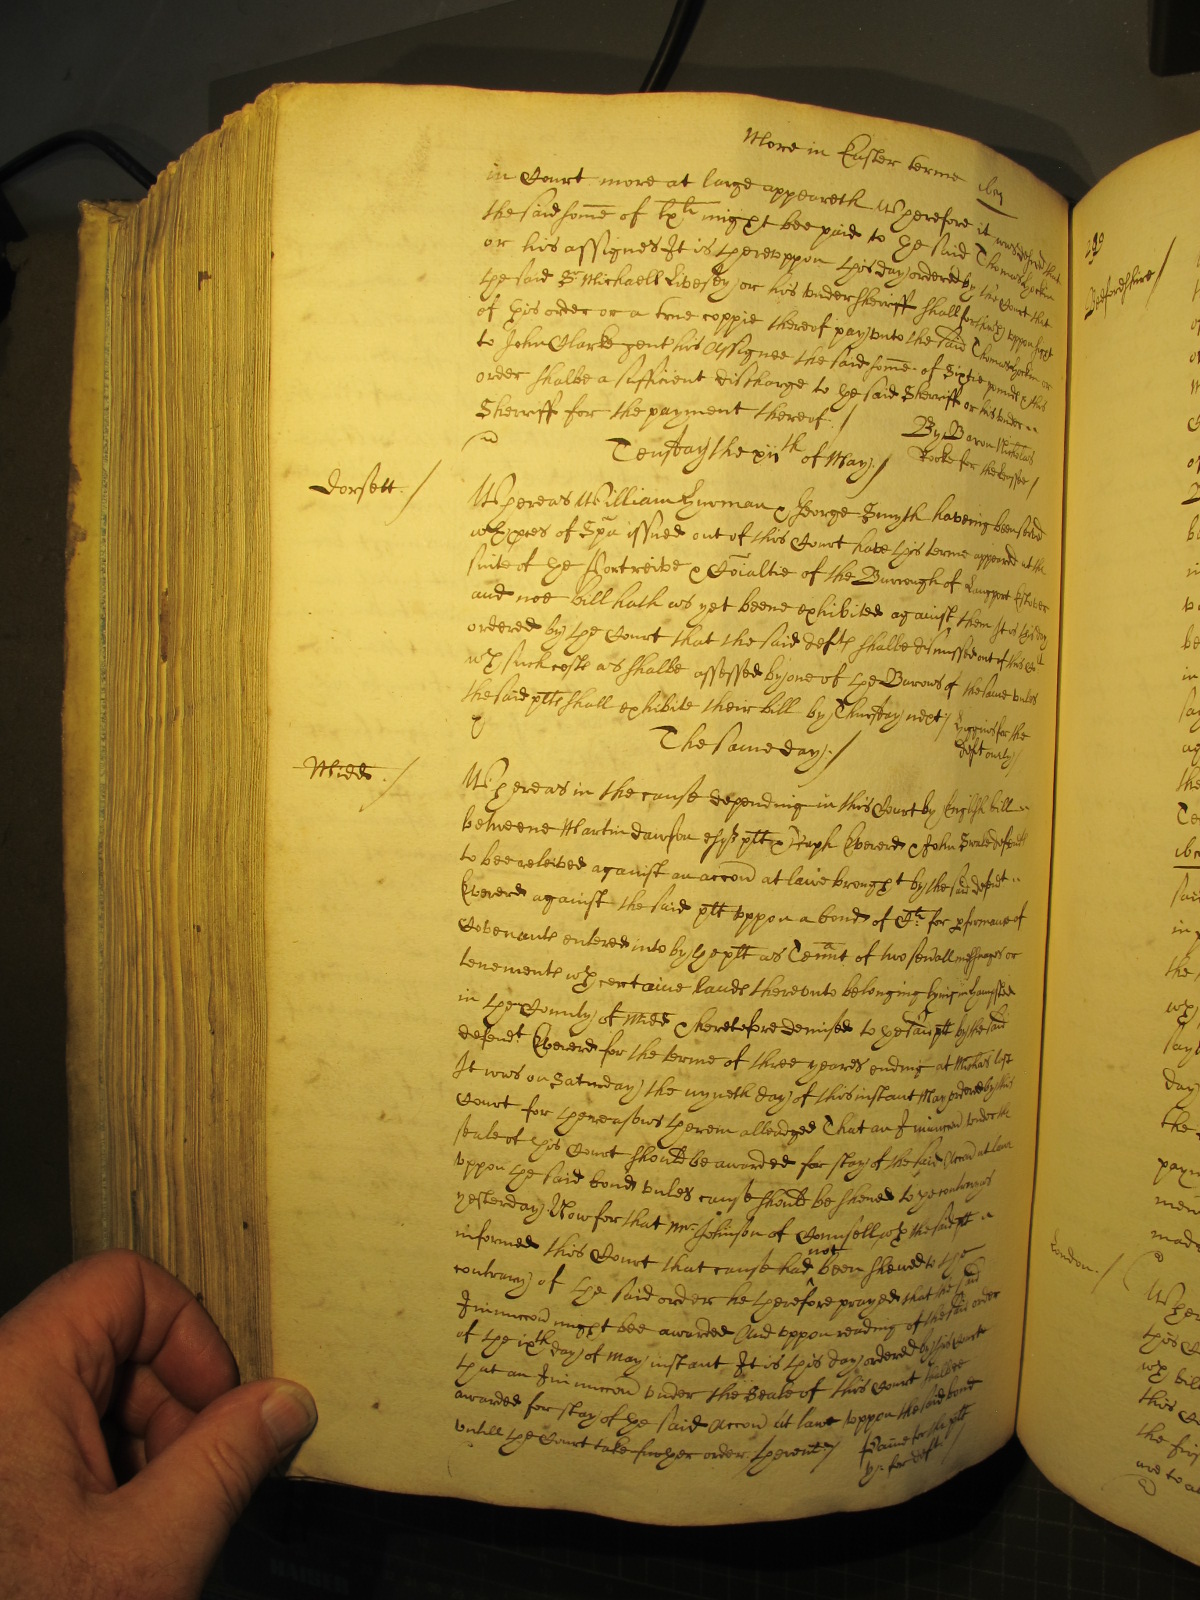 More in Easter terme
in Court more at large appeareth Wherefore it was desired that
the said some of lxli might bee paid to the said Thomas
or his assignes It is thereuppon this day ordered by the Court that
the said Sr Michaell Livesey or his undersherriff shall forthwith uppon sight
of this order or a true coppie thereof pay unto the said Thomas or
to John Clarke gent his Assignee the said some of Sixtie pounds & this
order shalbe a sufficient discharge to the said Sherriff or his under
Sherriff for the payment thereof. /
By Baron Nicholas
Tooke for the
Teusday the xiith of May. /
Dorsett. /
Whereas William & George Smyth haveing been served
wth pces of Spa issued out of this Court have this terme appeared at the
suite of the Portreive & Coialtie of the Burrough of Langport Estover
and noe bill hath as yet beene exhibited against them It is this day
ordered by the Court that the said defts shalbe dismissed out of this Court
wth such costs as shalbe assessed by one of the Barons of the same unles
the said plts shall exhibite their bill by Thursday next /
Higgins for the
defts only /
The same day. /
Midd. /
Whereas in the cause depending in this Court by English bill
betweene Martin Dawson esqr plt & Evererd & John defendts
to bee releived against an accon at lawe brought by the said defendt
Evererd against the said plt uppon a bond of Cli for pformance of
Covenants entered into by the plt as Tennt of two severall messuages or
tenements wth certaine lands thereunto belonging lying in Hampsted
in the County of Midd & heretofore demised to the said plt by the said
defendt Evererd for the terme of three yeares ending at Michas last
It was on Saturday the nyneth day of this instant May ordered by this
Court for the reasons therein alleadged That an Iniunccon under the
seale of this Court should be awarded for stay of the said Accon at law
uppon the said bond unles cause should be shewed to the contrary
yesterday Now for that Mr Johnson of Counsell wth the said plt
informed this Court that cause had not been shewed to the
contrary of the said order he therefore prayed that the said
Iniunccon might bee awarded And uppon reading of the said order
of the ixth day of May instant It is this day ordered by this Court
that an Iniunccon under the Seale of this Court shalbee
awarded for stay of the said Accon at lawe uppon the said bond
untill the Court take further order therein /
for the plt
for deft
Bedfordshire /
London. /